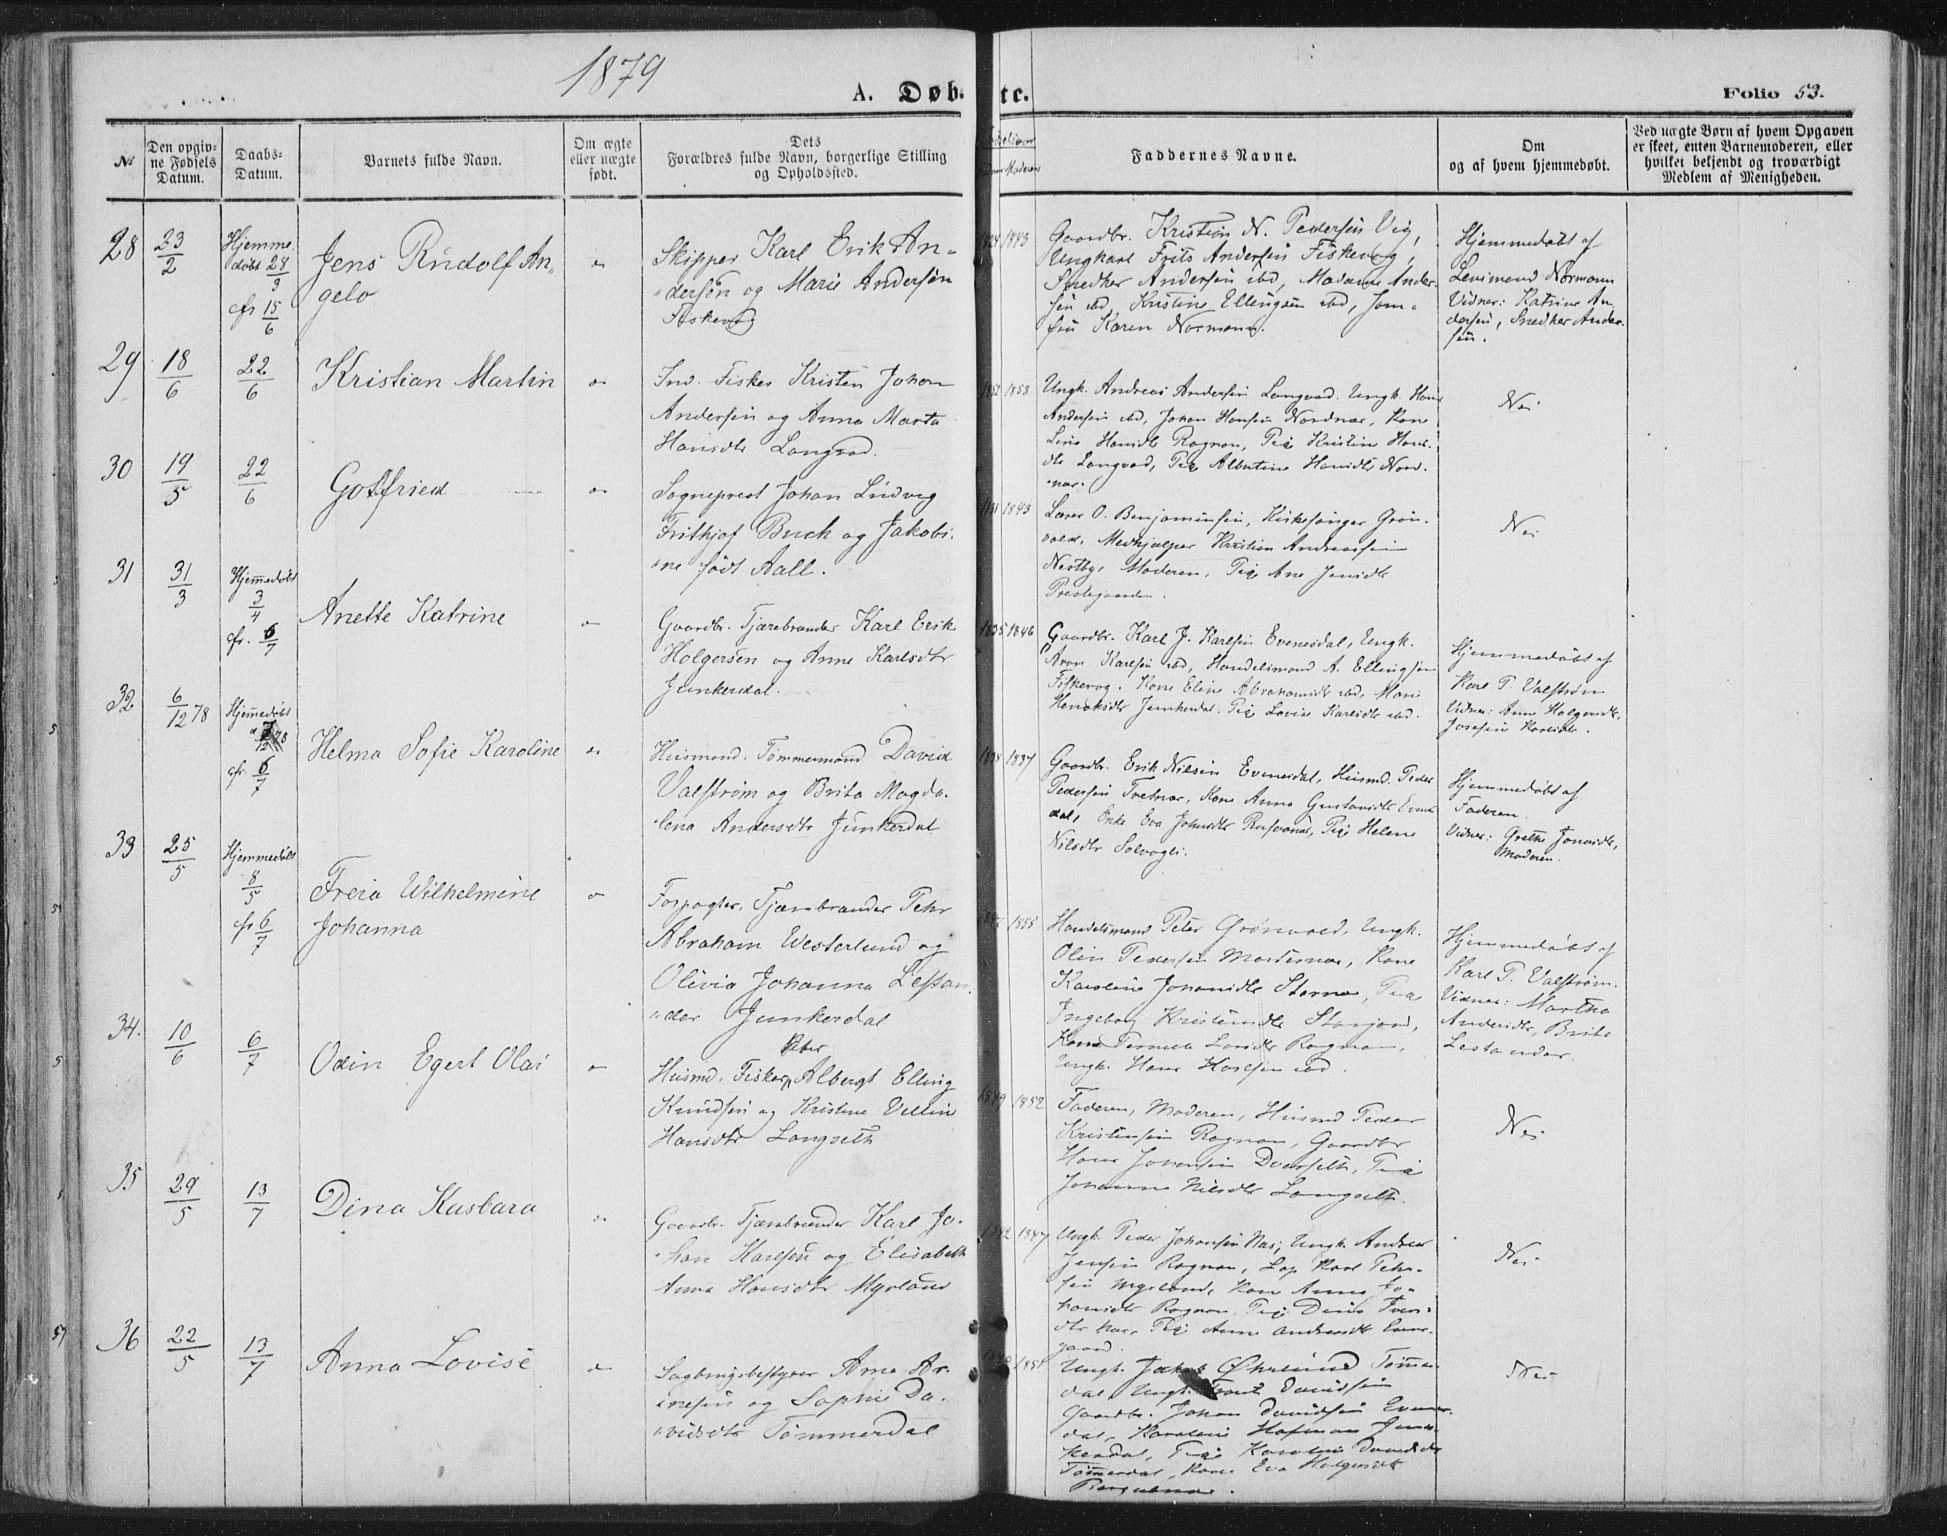 1879
A. Døb te.
Folio 53.
№
Den opgiv-
ne Fødsels
Datum.
Daabs-
Datum.
Barnets fulde Navn.
Om ægte
eller uægte
født.
Dets
Forældres fulde Navn, borgerlige Stilling
og Opholdssted.
Faddernes Navne.
Om
og af hvem hjemmedøbt.
Ved uægte Børn af hvem Opgaven
er skeet, enten Barnemoderen, eller
hvilket bekjendt og troværdigt
Medlem af Menigheden.
28
23/2
Hjemme
døbt 28/3
cfr 15/6
Jens Rudolf An-
gelo
Skipper Karl Erik An-
dersen og Marie Andersen
Fiskevog
1843
Gaardbr. Kristian N. Pedersen Vig,
Ungkarl Frits Andersen Fiskevog,
Snedker Andersen ibd, Madame Ander-
sen ibd, Kristine Ellingsen ibd, Jom-
fru Karen Normann.
Hjemmedøbt af
Lensmand Normann
Vidner: Katrine An-
dersen, Snedker Ander-
sen.
29
18/6
22/6
Kristian Martin
Ind. Fisker Kristen Johan
Andersen og Anna Marta
Hansdtr Langvad.
1852 1853
Ungk. Andreas Andersen Langvad. Ungk. Hans
Andersen ibd, Johan Hansen Nordnæs, Kone
Lina Hansdtr Rognan, Pige Kristine Hans-
dtr Langvad, Pige Albertine Hansdtr Nord-
næs.
Nei
30
19/5
22/6
Gotfried
Sogneprest Johan Ludvig
Frithjof Buch og Jakobi-
ne født Aall.
1843
Lærer O. Benjaminsen, Kirkesanger Grøn-
vold, Medhjælper Kristian Andreassen
Nestby, Moderen, Pige Ane Jensdtr
Prestegaarden.
Nei
31
31/3
Hjemmedøbt
3/4
cfr. 6/7
Anette Katrine
Gaardbr. Tjærebrænder Karl Erik
Holgersen og Anne Karlsdtr
Junkerdal.
1835 1846
Gaardbr. Karl J. Karlsen Evenesdal, Ungk.
Aron Karlsen ibd, Handelsmand A. Ellingsen
Fiskevog. Kone Elin Abrahamsdtr ibd, Mari
Henriksdtr Junkerdal. Pige Lovise Karlsdtr ibd.
Hjemmedøbt af
Karl P. Valstrøm
Vidner: Ane Holgersdtr,
Josefine Karlsdtr.
32
6/12 78
Hjemmedøbt
cfr. 6/7
Helma Sofie Karoline
Husmand. Tømmermand David
Valstrøm og Brita Magda-
lena Andersdtr Junkerdal
1837
Gaardbr. Erik Nilsen Evenesdal, Husmd. Peder
Pedersen Tretnæs, Kone Anna Gustavsdtr Evenes-
dal, Enke Eva Johnsdtr Rusvand, Pige Helene
Nilsdtr Solvogli.
Hjemmedøbt af
Faderen.
Vidner: Grethe Jonsdtr,
Moderen.
33
25/5
Hjemmedøbt
8/5
cfr 6/7
Freia Wilhelmine
Johanna
Forpagter. Tjærebrænder Pehr
Abraham Westerlund og
Olivia Johanna Lestan-
der Junkerdal
1855
Handelsmand Peter Grønvold, Ungk.
Olin Pedersen Mortensnæs, Kone
Karoline Johansdtr Stornæs, Pige
Ingeborg Kristensdtr Storjord,
Kone Pernella Larsdtr Rognan,
Ungk. Hans Hansen ibd.
Hjemmedøbt af
Karl P. Valstrøm.
Vidner: Martha
Andersdtr, Brita
Lestander.
34.
10/6
6/7
Odin Egert Olai
Peter
Husmd. Fisker Albergt Elling
Knudsen og Kristine Vellin
Hansdtr Langseth
1849 1852
Faderen, Moderen, Husmd Peder
Kristensen Rognan, Gaardbr
Hans Johansen Dverseth, Pige
Johanna Nilsdtr Langseth.
Nei
35
29/5
13/7
Dina Kasbara
Gaardbr. Tjærebrænder Karl Jo-
han Karlsen og Elisabeth
Anna Hansdtr Myrland
1842 1847
Ungk. Peder Johansen Næs, Ungk. Andreas
Jensen Rognan, Lap Karl Pehr-
sen Myrland, Kone Anna Jo-
hansdtr Rognan. Pige Dina Iver-
dtr Næs, Pige Anne Andreasdtr Evens-
gaard.
Nei
36
22/5
13/7
Anna Lovise
Sagbrugsbestyrer Arne Ar-
nesen og Sophie Da-
vidsdtr Tømmerdal
185
Ungk. Jakob Økslund Tømmer-
dal Ungk. Davidsen
Gaardbr. Johan Davidsen Evenes-
dal, Karoline Hofman Jun-
kerdal, Pige Karoline Davidsdtr
Tømmerdal, Kone Eva Holgersdtr
Nei